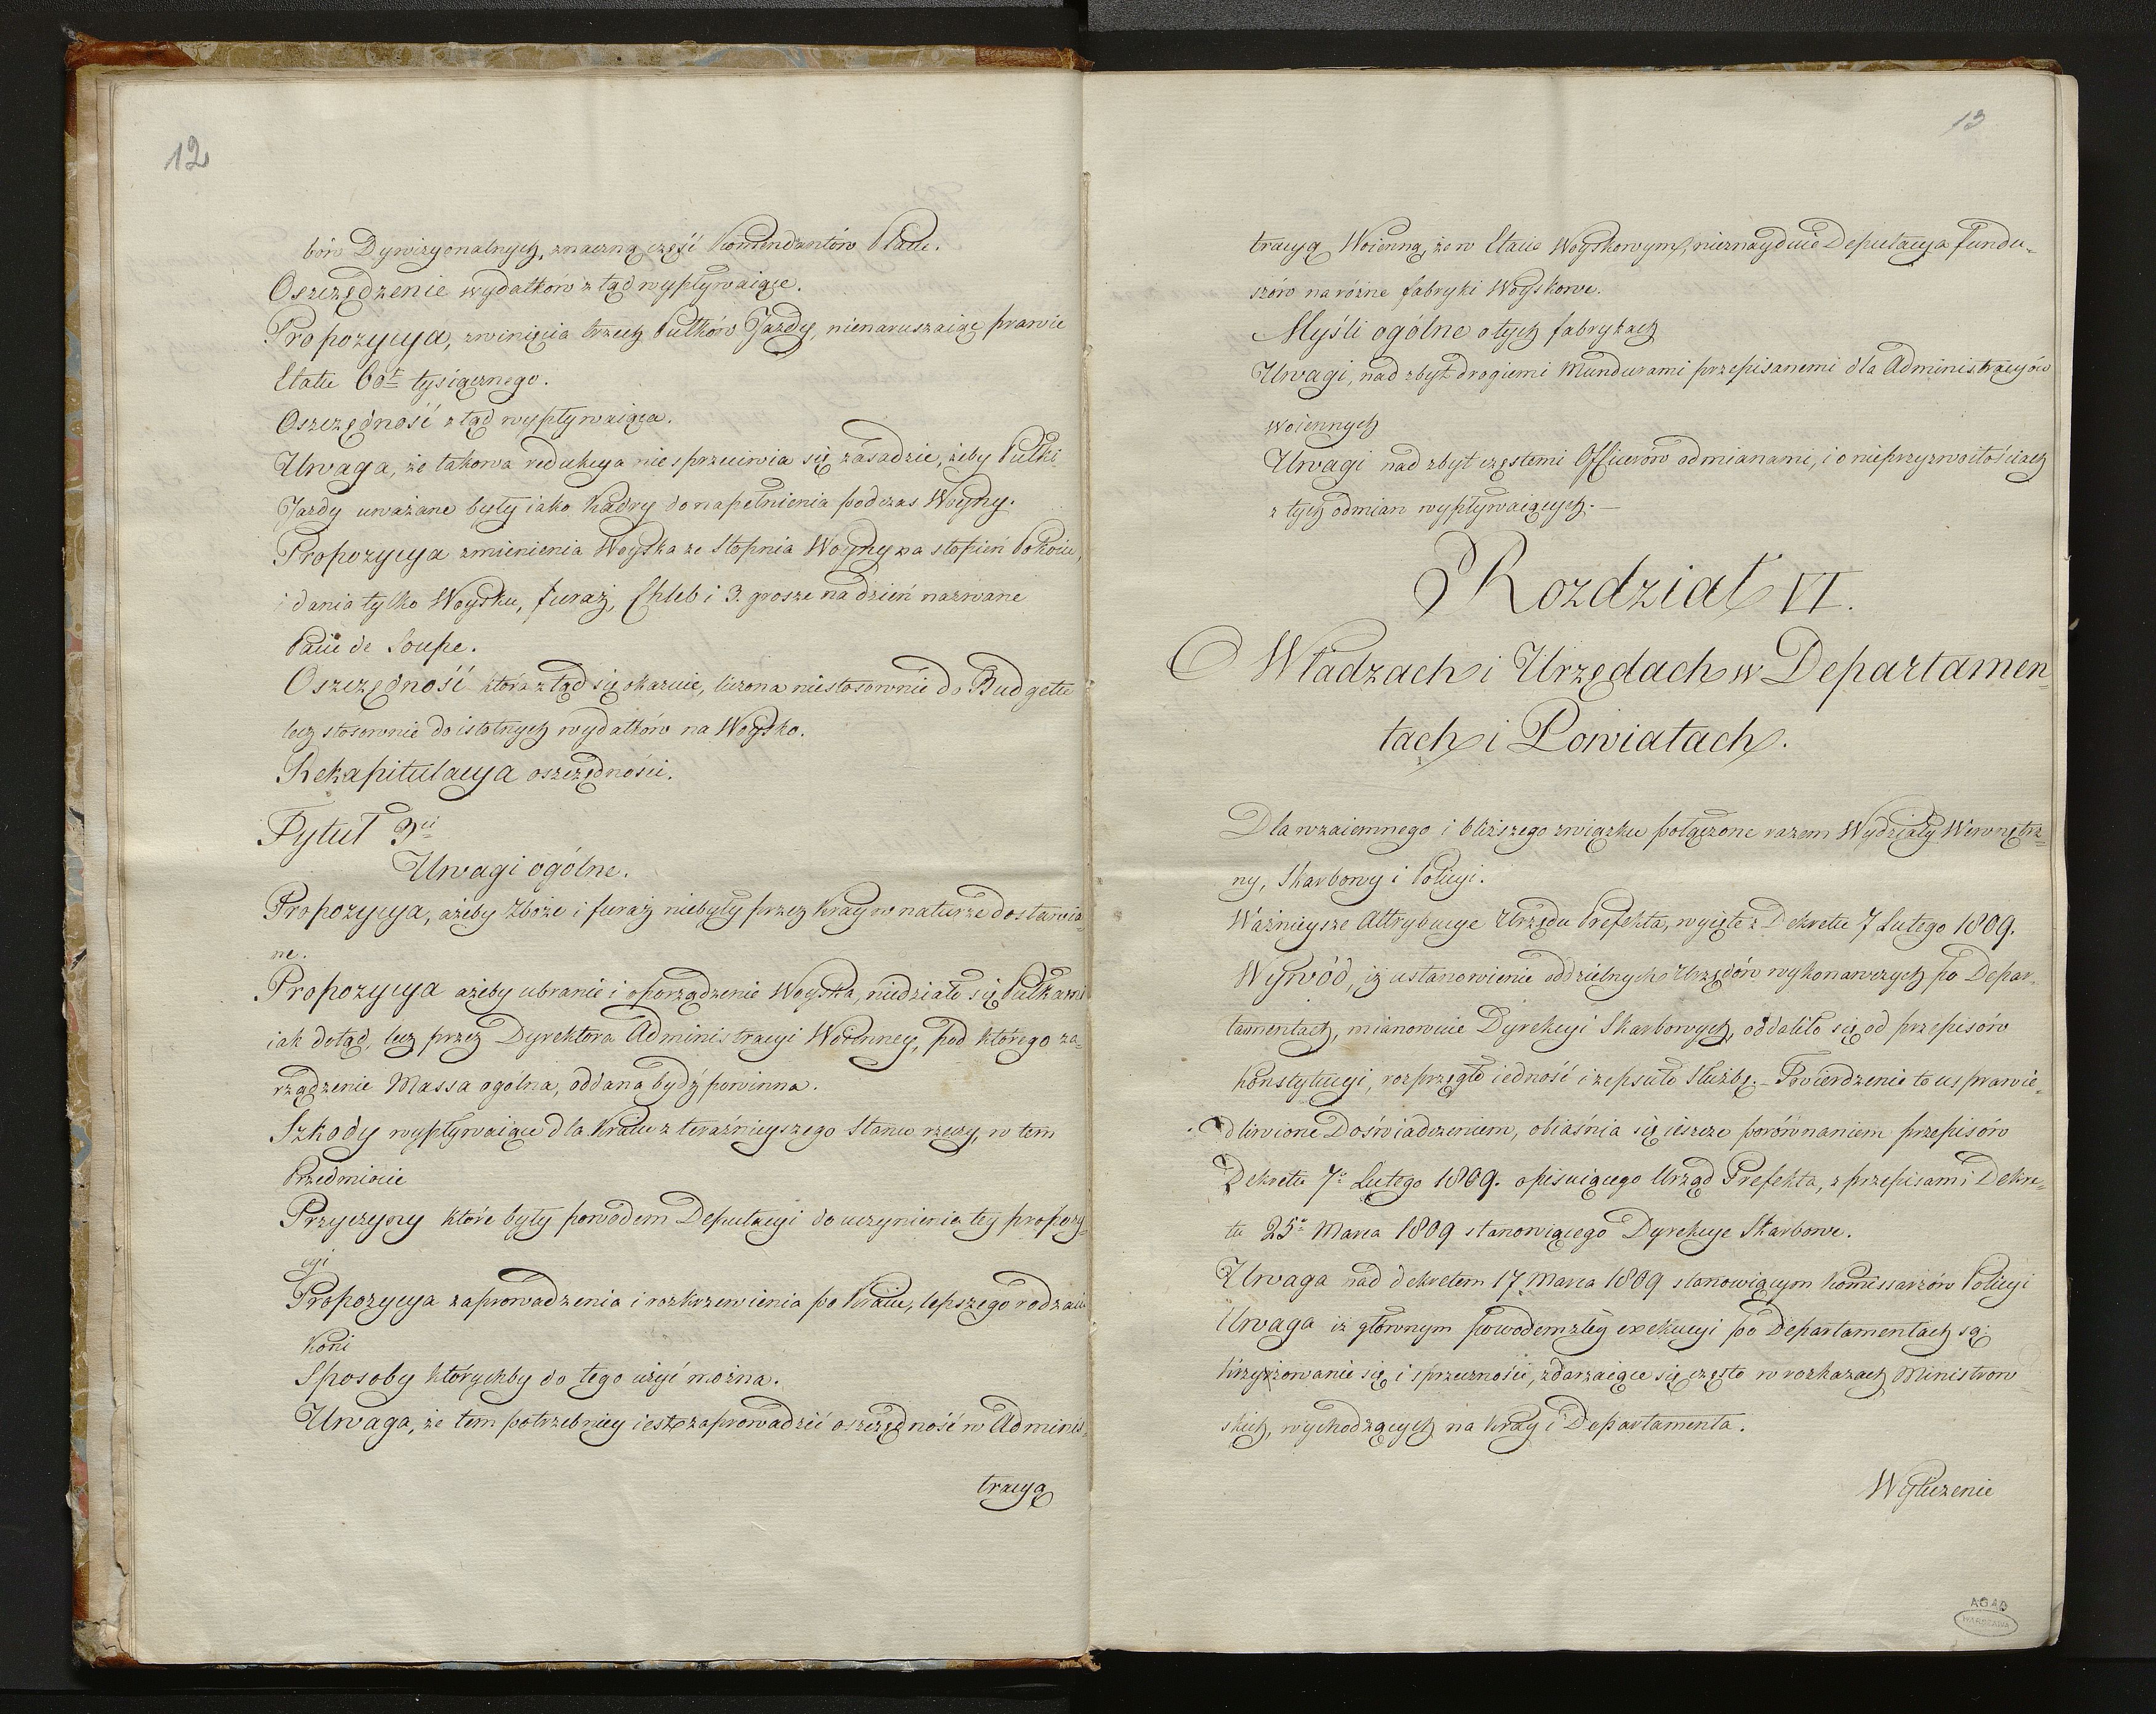 12
bów Dywizyonalnych, znaczną część Komendantów Placu.
Oszczędzenie wydatków z tąd wypływaiące.
Propozycya, zwinięcia trzech Pułków Jazdy, nienaruszaiąc prawie
Etatu 60t tysięcznego.
Oszczędność z tąd wypływaiąca.
Uwaga, że takowa redukcya nie sprzeciwia się zasadzie, żeby Pułki
Jazdy uważane były iako Kadry do napełnienia podczas Woyny.
Propozycya zmienienia Woyska ze Stopnia Woyny na stopień Pokoiu,
i dania tylko Woysku, furaż, Chleb i 3. grosze na dzień nazwane
de Soupe.
Oszczędność która z tąd się okazuie, liczona niestosownie do Budgetu
lecz stosownie do istotnych wydatków na Woysko.
Rekapitulacya oszczędności.
Tytuł 3ci
Uwagi ogólne.
Propozycya, ażeby Zboże i furaż niebyły przez Kray w naturze dostawia=
ne.
Propozycya ażeby ubranie i oporządzenie Woyska, niedziało się Pułkami
iak dotąd, lecz przez Dyrektora Administracyi Woienney, pod którego za=
rządzenie Massa ogólna, oddana bydź powinna.
Szkody wypływaiące dla Kraiu z teraźnieyszego Stanu rzeczy, w tem
Przedmiocie
Przyczyny które były powodem Deputacyi do uczynienia tey propozy=
cyi
Propozycya zaprowadzenia i rozkrzewienia po Kraiu, lepszego rodzaiu
Koni
Sposoby którychby do tego użyć można.
Uwaga, że tem potrzebniey iest zaprowadzić oszczędność w Adminis=
tracyą
13
tracyą Woienną, że w Etacie Woyskowym, nieznayduie Deputacya fundu=
szów na różne fabryki Woyskowe.
Myśli ogólne o tych fabrykach
Uwagi, nad zbyt drogiemi Mundurami przepisanemi dla Administracyów
woiennych
Uwagi nad zbyt częstemi Officerów odmianami, i o nieprzyzwoitościach
z tych odmian wypływaiących. —
Rozdział VI.
O Władzach i Urzędach w Departamen=
tach i Powiatach.
Dla wzaiemnego i bliższego związku połączone razem Wydziały Wewnętrz=
ny, Skarbowy i Policyi.
Ważnieysze Attrybucye Urzędu Prefekta, wyięte z Dekretu 7 Lutego 1809.
Wywód, iż ustanowienie oddzielnych Urzędów wykonawczych po Depar=
tamentach, mianowicie Dyrekcyi Skarbowych, oddaliło się od przepisów
Konstytucyi, rozprzęgło iedność i zepsuło Służbę. – Twierdzenie to usprawie=
dliwione Doświadczeniem, obiaśnia się ieszcze porównaniem przepisów
Dekretu 7o Lutego 1809. opisuiącego Urząd Prefekta, z przepisami Dekre=
tu 25o Marca 1809 stanowiącego Dyrekcye Skarbowe.
Uwaga nad dekretem 17 Marca 1809 stanowiącym Komissarzów Policyi
Uwaga iż głównym powodem złey exekucyi po Departamentach są:
krzyżowanie się i sprzeczności, zdarzaiące się często w rozkazach Ministrow
skich, wychodzących na Kray i Departamenta.
Wyłuczenie
AGAD
WARSZAWA